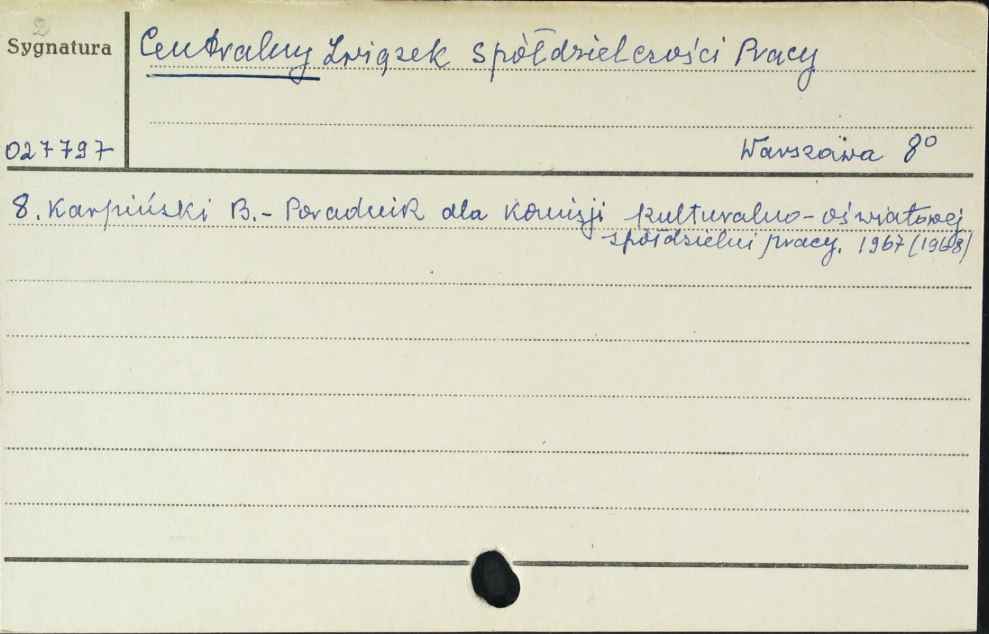 2
Sygnatura
Centralny Związek Spółdzielczości Pracy
027797
Warszawa 8º
8. Karpiński B. - Poradnik dla komisji kulturalno-oświatowej
spółdzielni pracy. 1967 (1968)